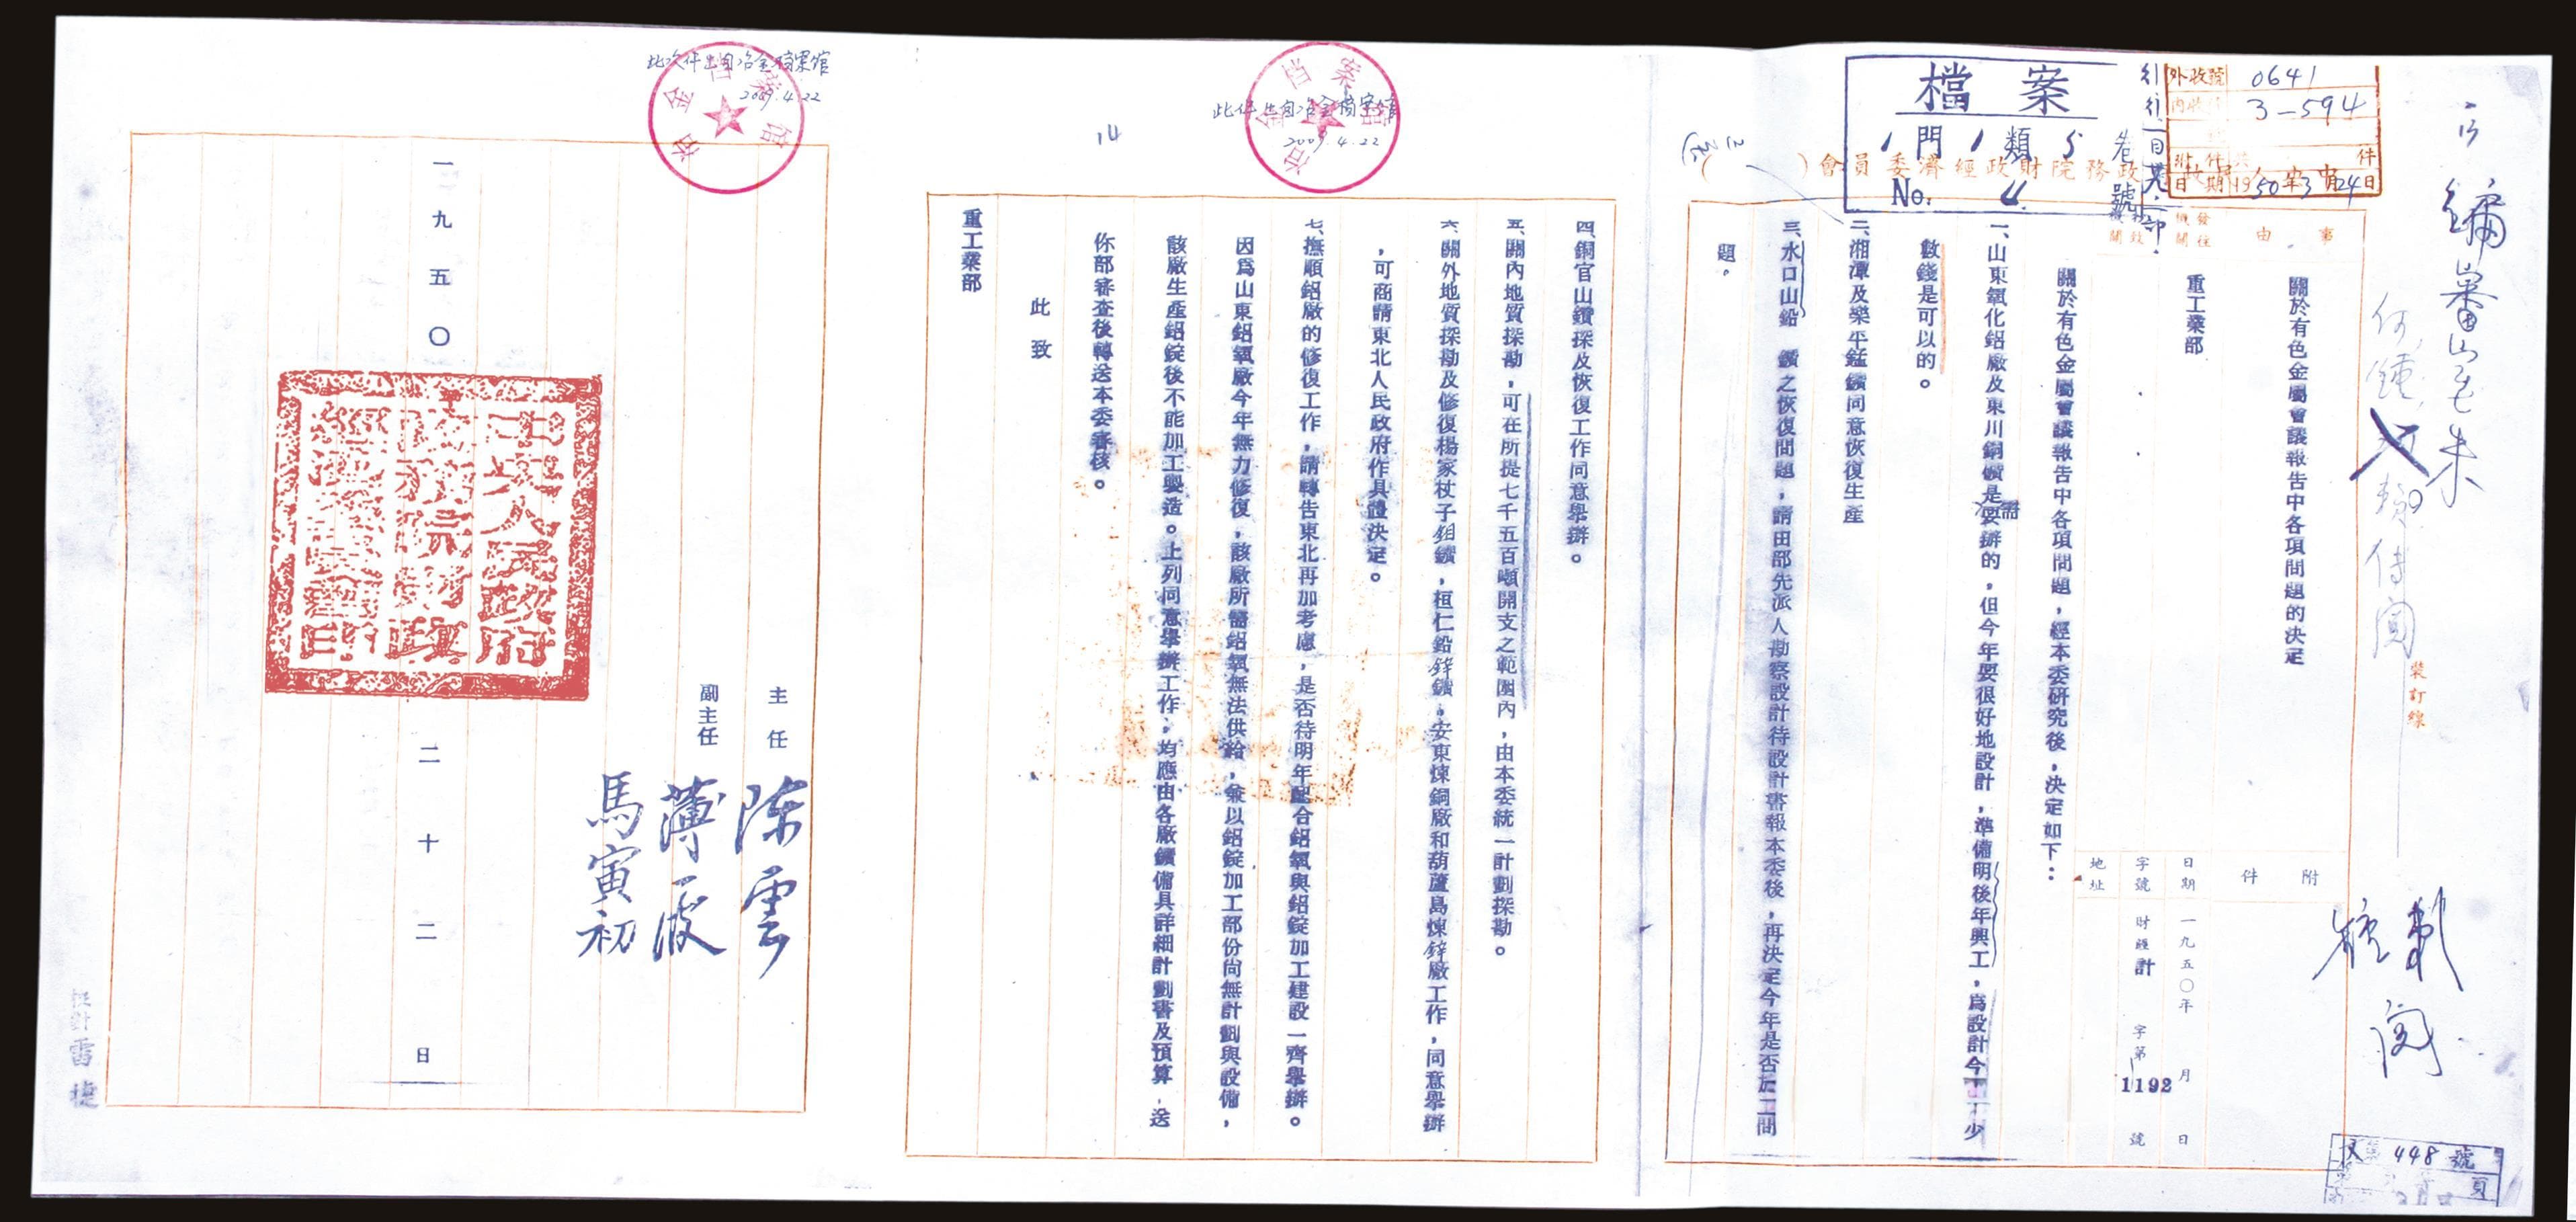 檔案
門 類
No. 4
外收號 0641
3—594
附件 件
日期 1950年3月24日
政務院財政經濟委員會( )
事由
關於有色金屬會議報告中各項問題的決定
發往機關
重工業部
附件
日期 一九五〇年 月 日
字號 財經計 字第1192號
地址
裝訂線
關於有色金屬會議報告中各項問題，經本委研究後，決定如下：
一、山東氧化鋁廠及東川銅鑛是需要辦的，但今年要很好地設計，準備明後年興工，爲設計今年 少
數錢是可以的。
二、湘潭及樂平錳鑛同意恢復生產
三、水口山鉛 鑛之恢復問題，請田部先派人勘察設計待設計書報本委後，再決定今年是否施工問
題。
四、銅官山鑽探及恢復工作同意舉辦。
五、關內地質探勘，可在所提七千五百噸開支之範圍內，由本委統一計劃探勘。
六、關外地質探勘及修復楊家杖子鉬鑛，桓仁鉛鋅鑛，安東煉銅廠和葫蘆島煉鋅廠工作，同意舉辦
，可商請東北人民政府作具體決定。
七、撫順鋁廠的修復工作，請轉告東北再加考慮，是否待明年配合鋁氧與鋁錠加工建設一齊舉辦。
因爲山東鋁氧廠今年無力修復，該廠所需鋁氧無法供給，兼以鋁錠加工部份尚無計劃與設備，
該廠生產鋁錠後不能加工製造。上列同意舉辦工作，均應由各廠鑛備具詳細計劃書及預算，送
你部審查後轉送本委審核。
此致
重工業部
主任 陳雲
副主任 薄一波
馬寅初
一九五〇 二十二日
中央人民政府政務院財政經濟委員會印
此件出自冶金档案馆
2009.4.22
冶金档案馆
此件出自冶金档案馆
2009.4.22
冶金档案馆
14
448號
頁
校對 雷捷